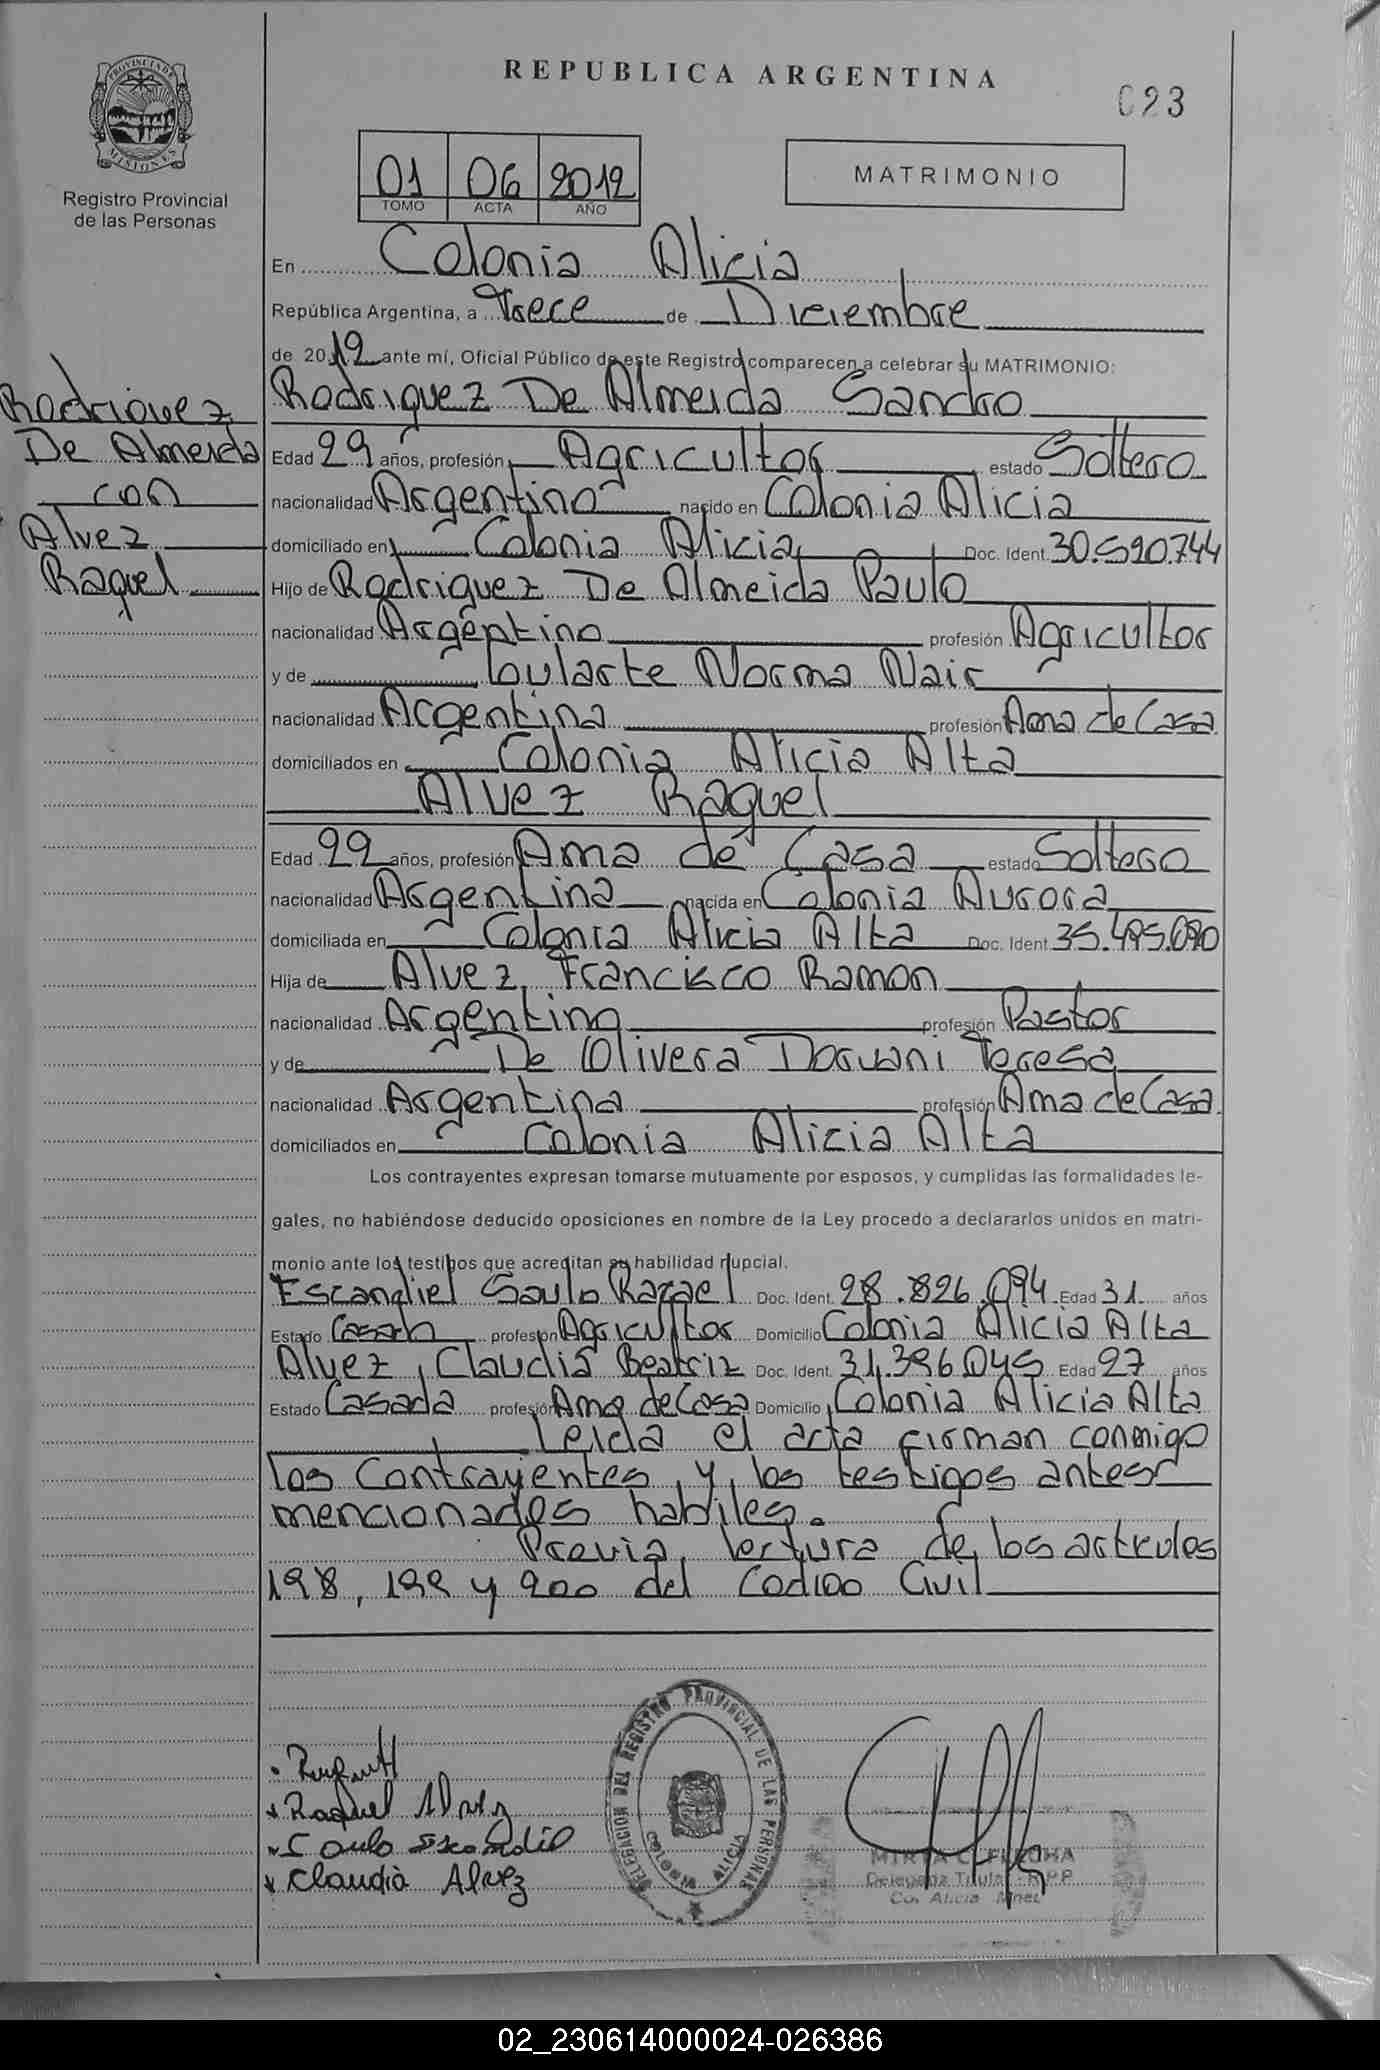 REPUBLICA ARGENTINA
023
PROVINCIA DE MISIONES
Registro Provincial
de las Personas
01 06 2012
TOMO ACTA AÑO
MATRIMONIO
En Colonia Alicia
República Argentina, a Trece de Diciembre
de 2012 ante mí, Oficial Público de este Registro comparecen a celebrar su MATRIMONIO:
Rodriguez De Almeida
con
Alvez
Raquel
Rodriguez De Almeida Sandro
Edad 29 años, profesión Agricultor estado Soltero
nacionalidad Argentino nacido en Colonia Alicia
domiciliado en Colonia Alicia Doc. Ident. 30.590.744
Hijo de Rodriguez De Almeida Paulo
nacionalidad Argentino profesión Agricultor
y de Goularte Norma Nair
nacionalidad Argentina profesión Ama de Casa
domiciliados en Colonia Alicia Alta
Alvez Raquel
Edad 22 años, profesión Ama de Casa estado Soltera
nacionalidad Argentina nacida en Colonia Aurora
domiciliada en Colonia Alicia Alta Doc. Ident. 35.495.090
Hija de Alvez, Francisco Ramon
nacionalidad Argentino profesión Pastor
y de De Olivera Teresa
nacionalidad Argentina profesión Ama de Casa
domiciliados en Colonia Alicia Alta
Los contrayentes expresan tomarse mutuamente por esposos, y cumplidas las formalidades le-
gales, no habiéndose deducido oposiciones en nombre de la Ley procedo a declararlos unidos en matri-
monio ante los testigos que acreditan su habilidad nupcial.
Escandiel Saulo Rafael Doc. Ident. 28.826.094 Edad 31 años
Estado Casado profesión Agricultor Domicilio Colonia Alicia Alta
Alvez, Claudia Beatriz Doc. Ident. 31.396.045 Edad 27 años
Estado Casada profesión Ama de Casa Domicilio Colonia Alicia Alta
Leida el acta firman conmigo
los Contrayentes y los testigos antes
mencionados habiles.
Previa lectura de los articulos
198, 199 y 200 del Codigo Civil
Raquel Alvez
Saulo Escandiel
Claudia Alvez
DELEGACION DEL REGISTRO PROVINCIAL DE LAS PERSONAS
COLONIA ALICIA
MIRTA C. FLECHA
Delegada Titular - RPP
Col. Alicia - Mnes.
02_230614000024-026386